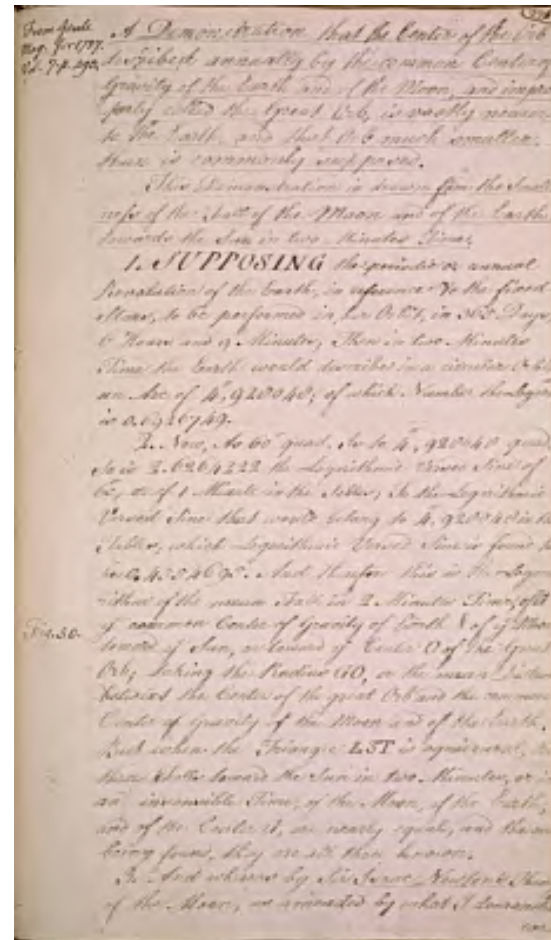 From Gent.
Mag. for 1737.
Vol. 7. p. 490.
A Demonstration that the Center of the Orb
described annually by the common Center of
Gravity of the Earth and of the Moon, and impro
perly called the Great Orb, is vastly nearer
to the Earth, and that Orb much smaller
than is commonly supposed.
This Demonstration is drawn from the Small
ness of the Fall of the Moon and of the Earth
towards the Sun in two Minutes Time.
1. SUPPOSING the periodic or annual
Revolution of the Earth, in reference to the fixed
Stars, to be performed in her Orbit, in 365 Days
6 Hours and 9 Minutes, Then in two Minutes
Time the Earth would describe in a circular Orbit
an Arc of 4", 920040; of which Number the Logar
is 0.6926749.
2. Now, As 60" quad. Is to 4", 920040 quad.
So is 2.6264222 the Logarithmic Versed Sine of
60", or of 1 Minute in the Tables, So the Logarithmic
Versed Sine that would belong to 4", 920040 in the
Tables, which Logarithmic Versed Sine is found to
be And therefore this is the Logar
ithm of the mean Fall in 2 Minutes Time, of
ye common Center of Gravity of Earth & of ye Moon
Fig. 50.
toward ye Sun, or toward ye Center O of the Great
Orb, taking the Radius GO, or the mean Distance
between the Center of the great Orb and the common
Center of Gravity of the Moon and of the Earth.
But when the Triangle LST is equicrural, the
three Falls toward the Sun in two Minutes, or in
an invisible Time, of the Moon, of the Earth,
and of the Center G, are nearly equal, and the one
being found, they are all then known.
3. And whereas by Sir Isaac Newton's Theory
of the Moon, as amended by what I